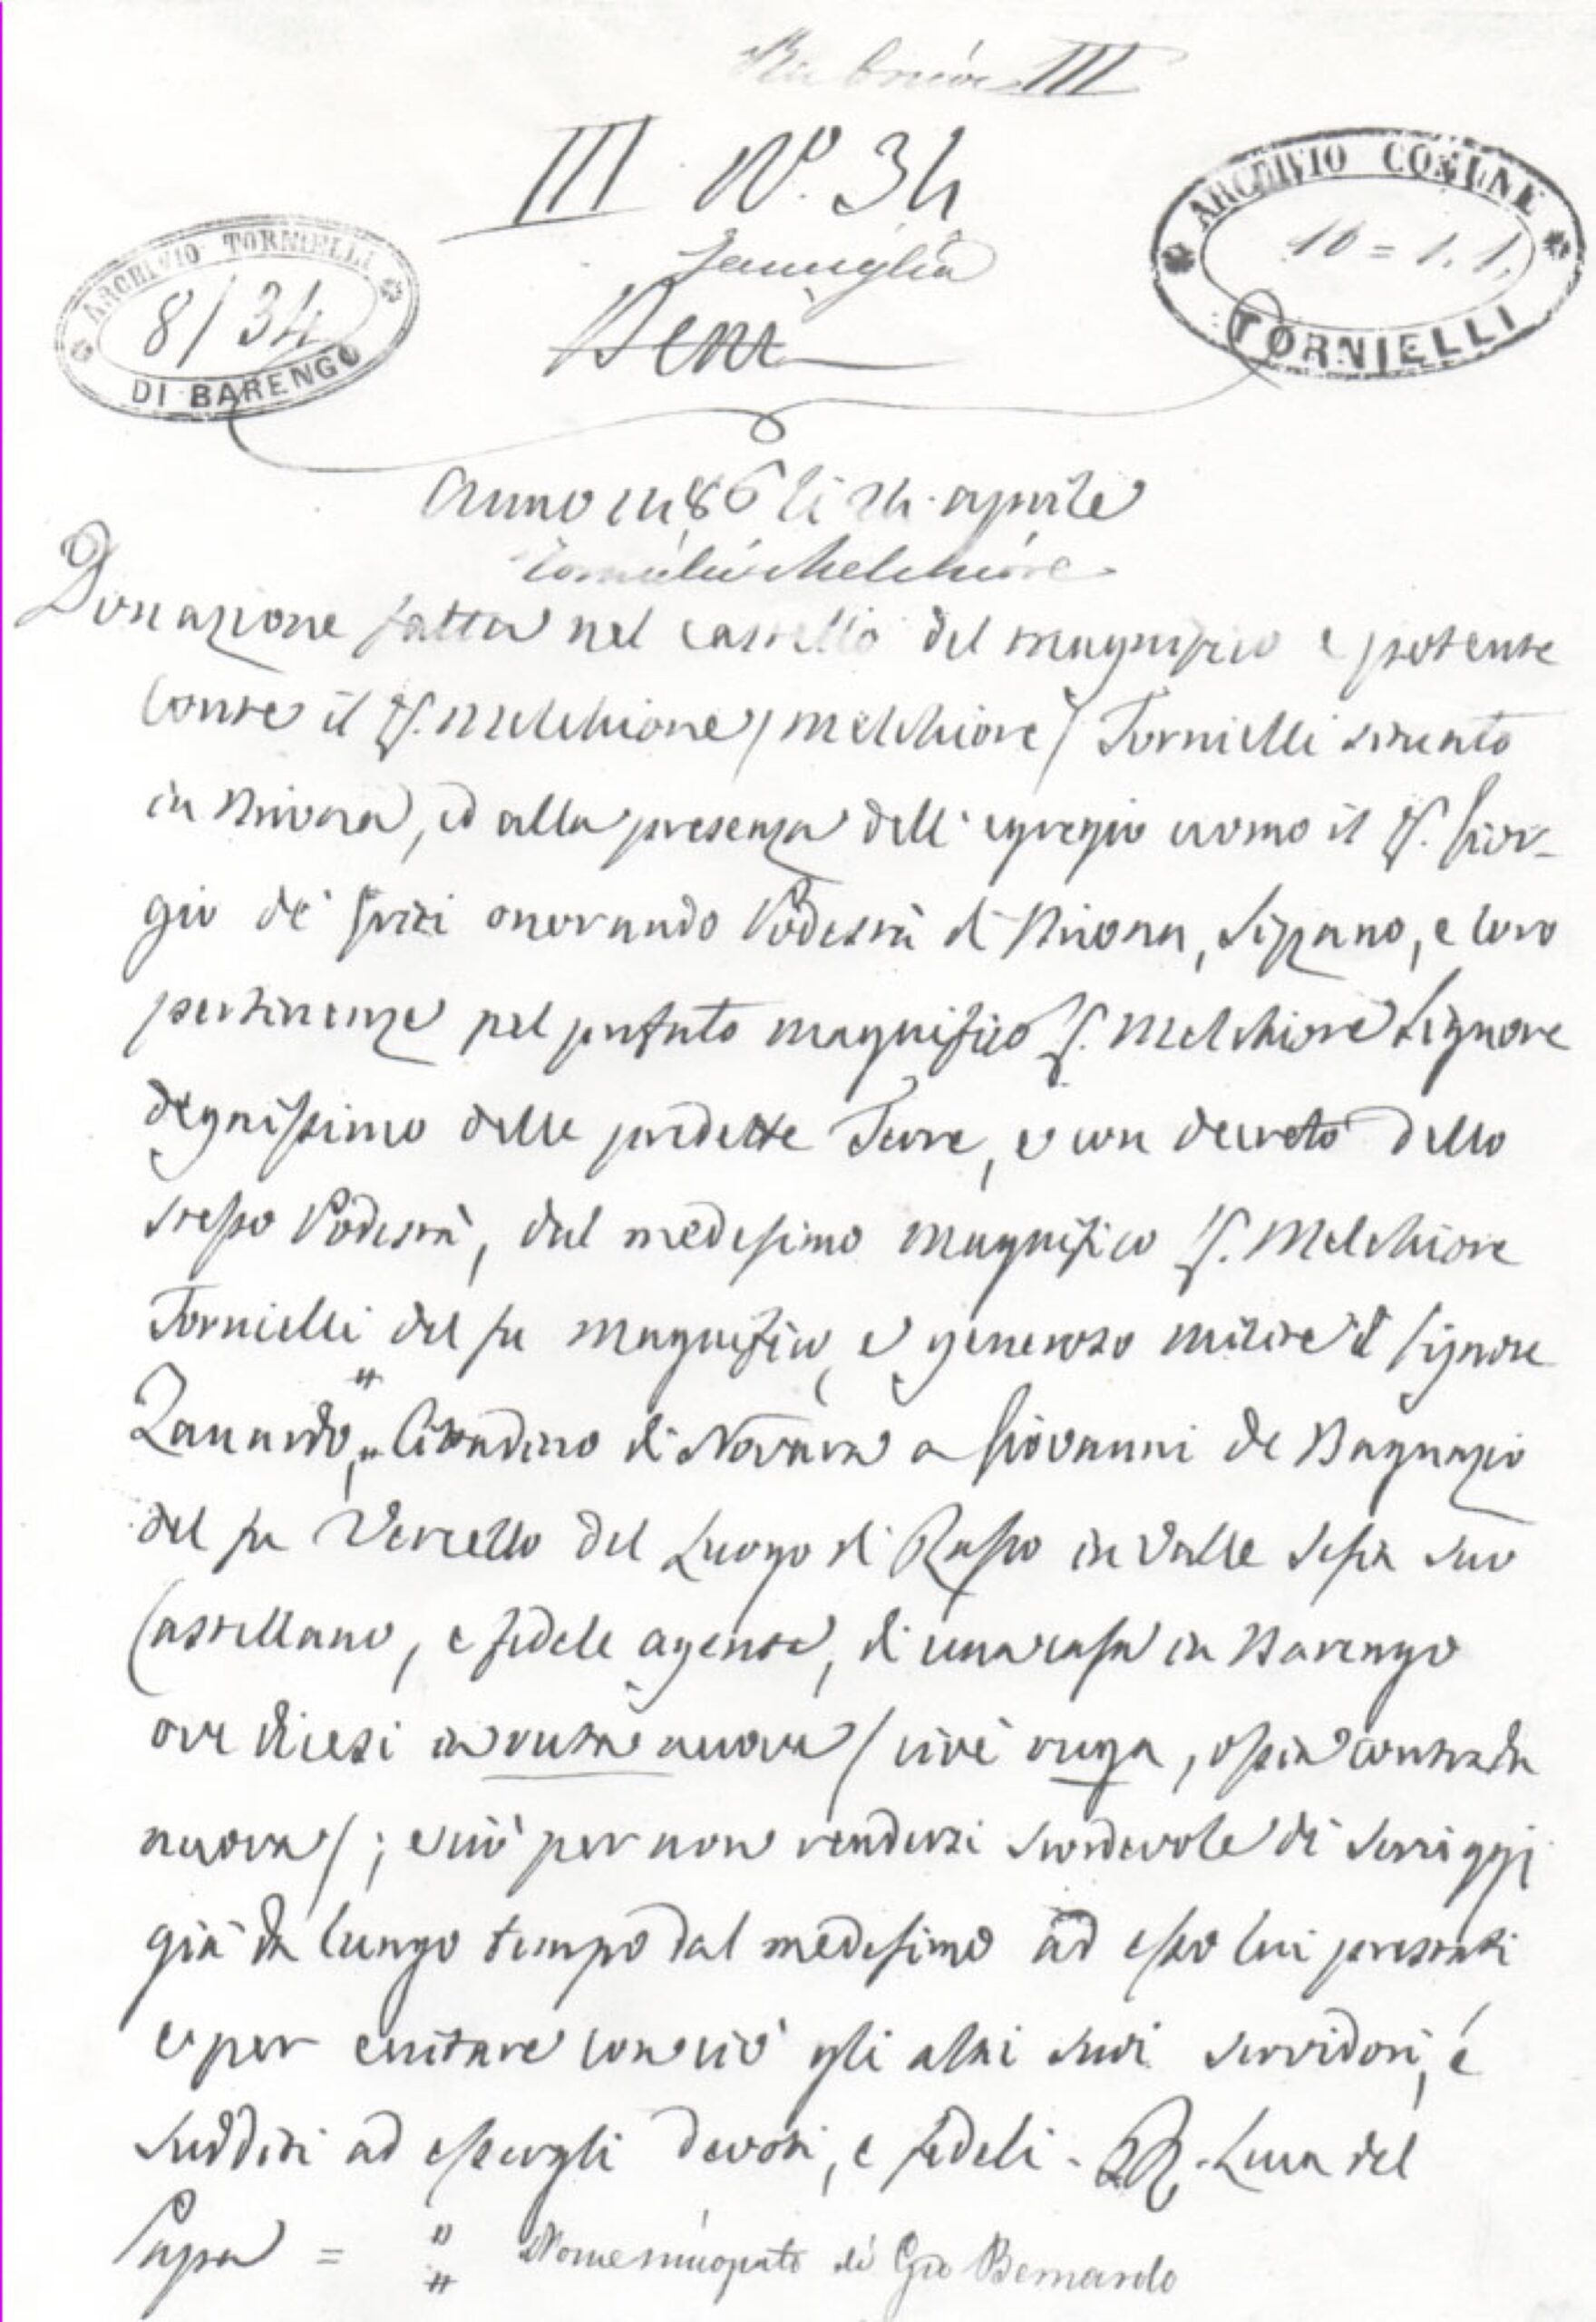 Rubrica III
III N.° 34
Famiglia
Beni
ARCHIVIO TORNIELLI
8/34
DI BARENGO
ARCHIVIO COMUNE
10 = 1.1.
TORNIELLI
Anno 1486 li 24 aprile
Tornielli Melchiore
Donazione fatta nel castello del magnifico e potente
Conte il S. Melchione / Melchiore / Tornielli situato
in Briona, ed alla presenza dell' egregio uomo il S. Gior-
gio de' onorando Podestà di Briona, Sizzano, e loro
pertinenze pel prefato magnifico S. Melchiore Signore
degnissimo delle predette Terre, e con decreto dello
stesso Podestà, dal medesimo magnifico S. Melchiore
Tornielli del fu magnifico, e generoso milite il Signore
Zanardo, " Cittadino di Novara a Giovanni de Bagnazio
del fu Vercello del Luogo di Rasso in Valle Sesia suo
Castellano, e fedele agente, di una casa in Barengo
ove dicesi in nuova / cioè ruga, ossia contrada
nuova /; e ciò per non rendersi scordevole di serviggj
già da lungo tempo dal medesimo ad esso lui prestati
e per eccitare con ciò gli altri suoi servidori, e
sudditi ad essergli devoti, e fedeli - - Luca del
Papa = " Nome sincopato di Gio Bernardo